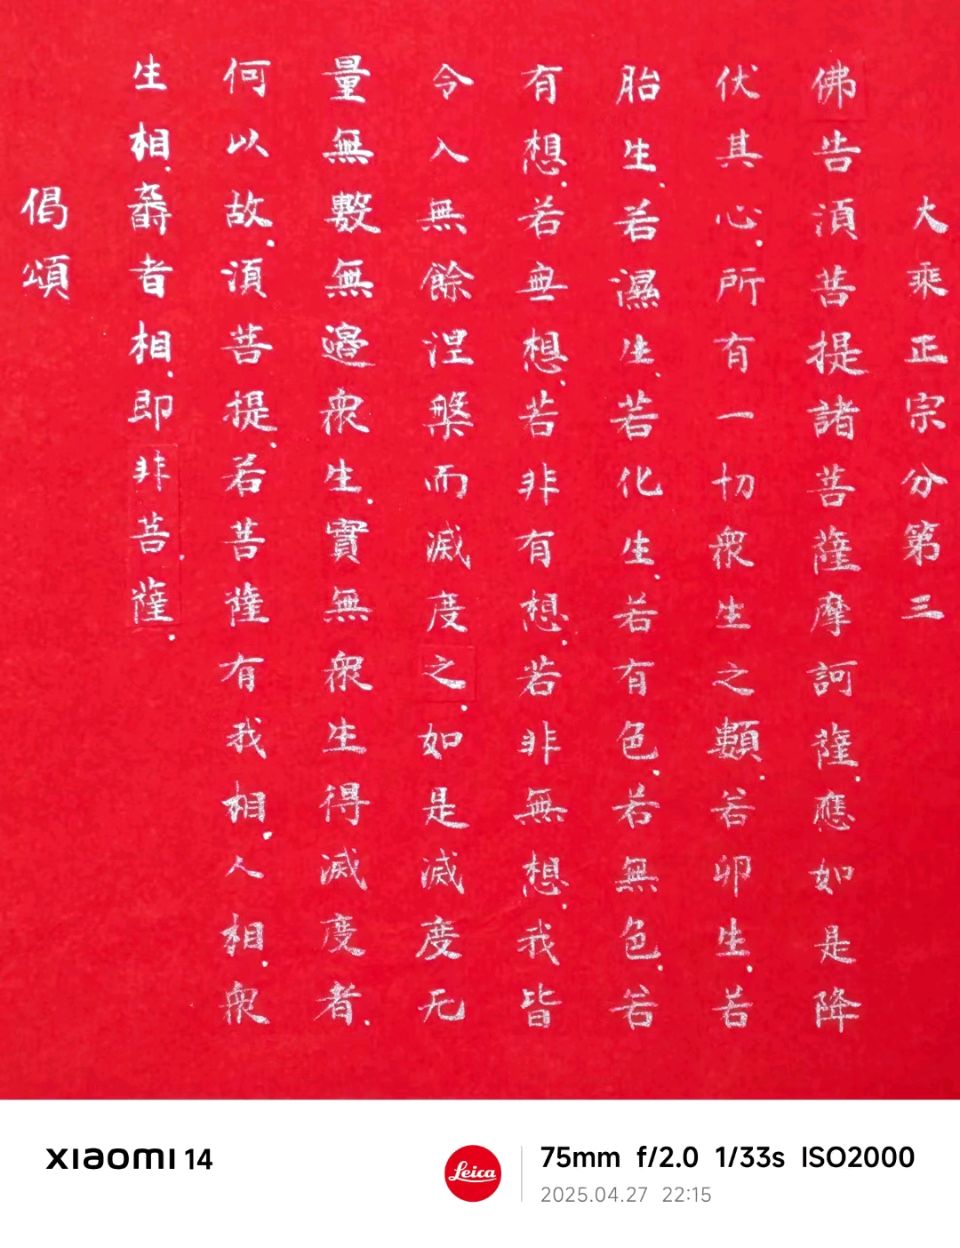 大乘正宗分第三
佛告須菩提諸菩薩摩訶薩.應如是降
伏其心.所有一切衆生之類.若卵生.若
胎生.若濕生.若化生.若有色.若無色.若
有想.若無想.若非有想.若非無想.我皆
令入無餘涅槃而滅度之.如是滅度无
量無數無邊衆生.實無衆生得滅度者.
何以故.須菩提.若菩薩有我相.人相.衆
生相.壽者相.即非菩薩.
偈頌
xiaomi 14
Leica
75mm f/2.0 1/33s ISO2000
2025.04.27 22:15